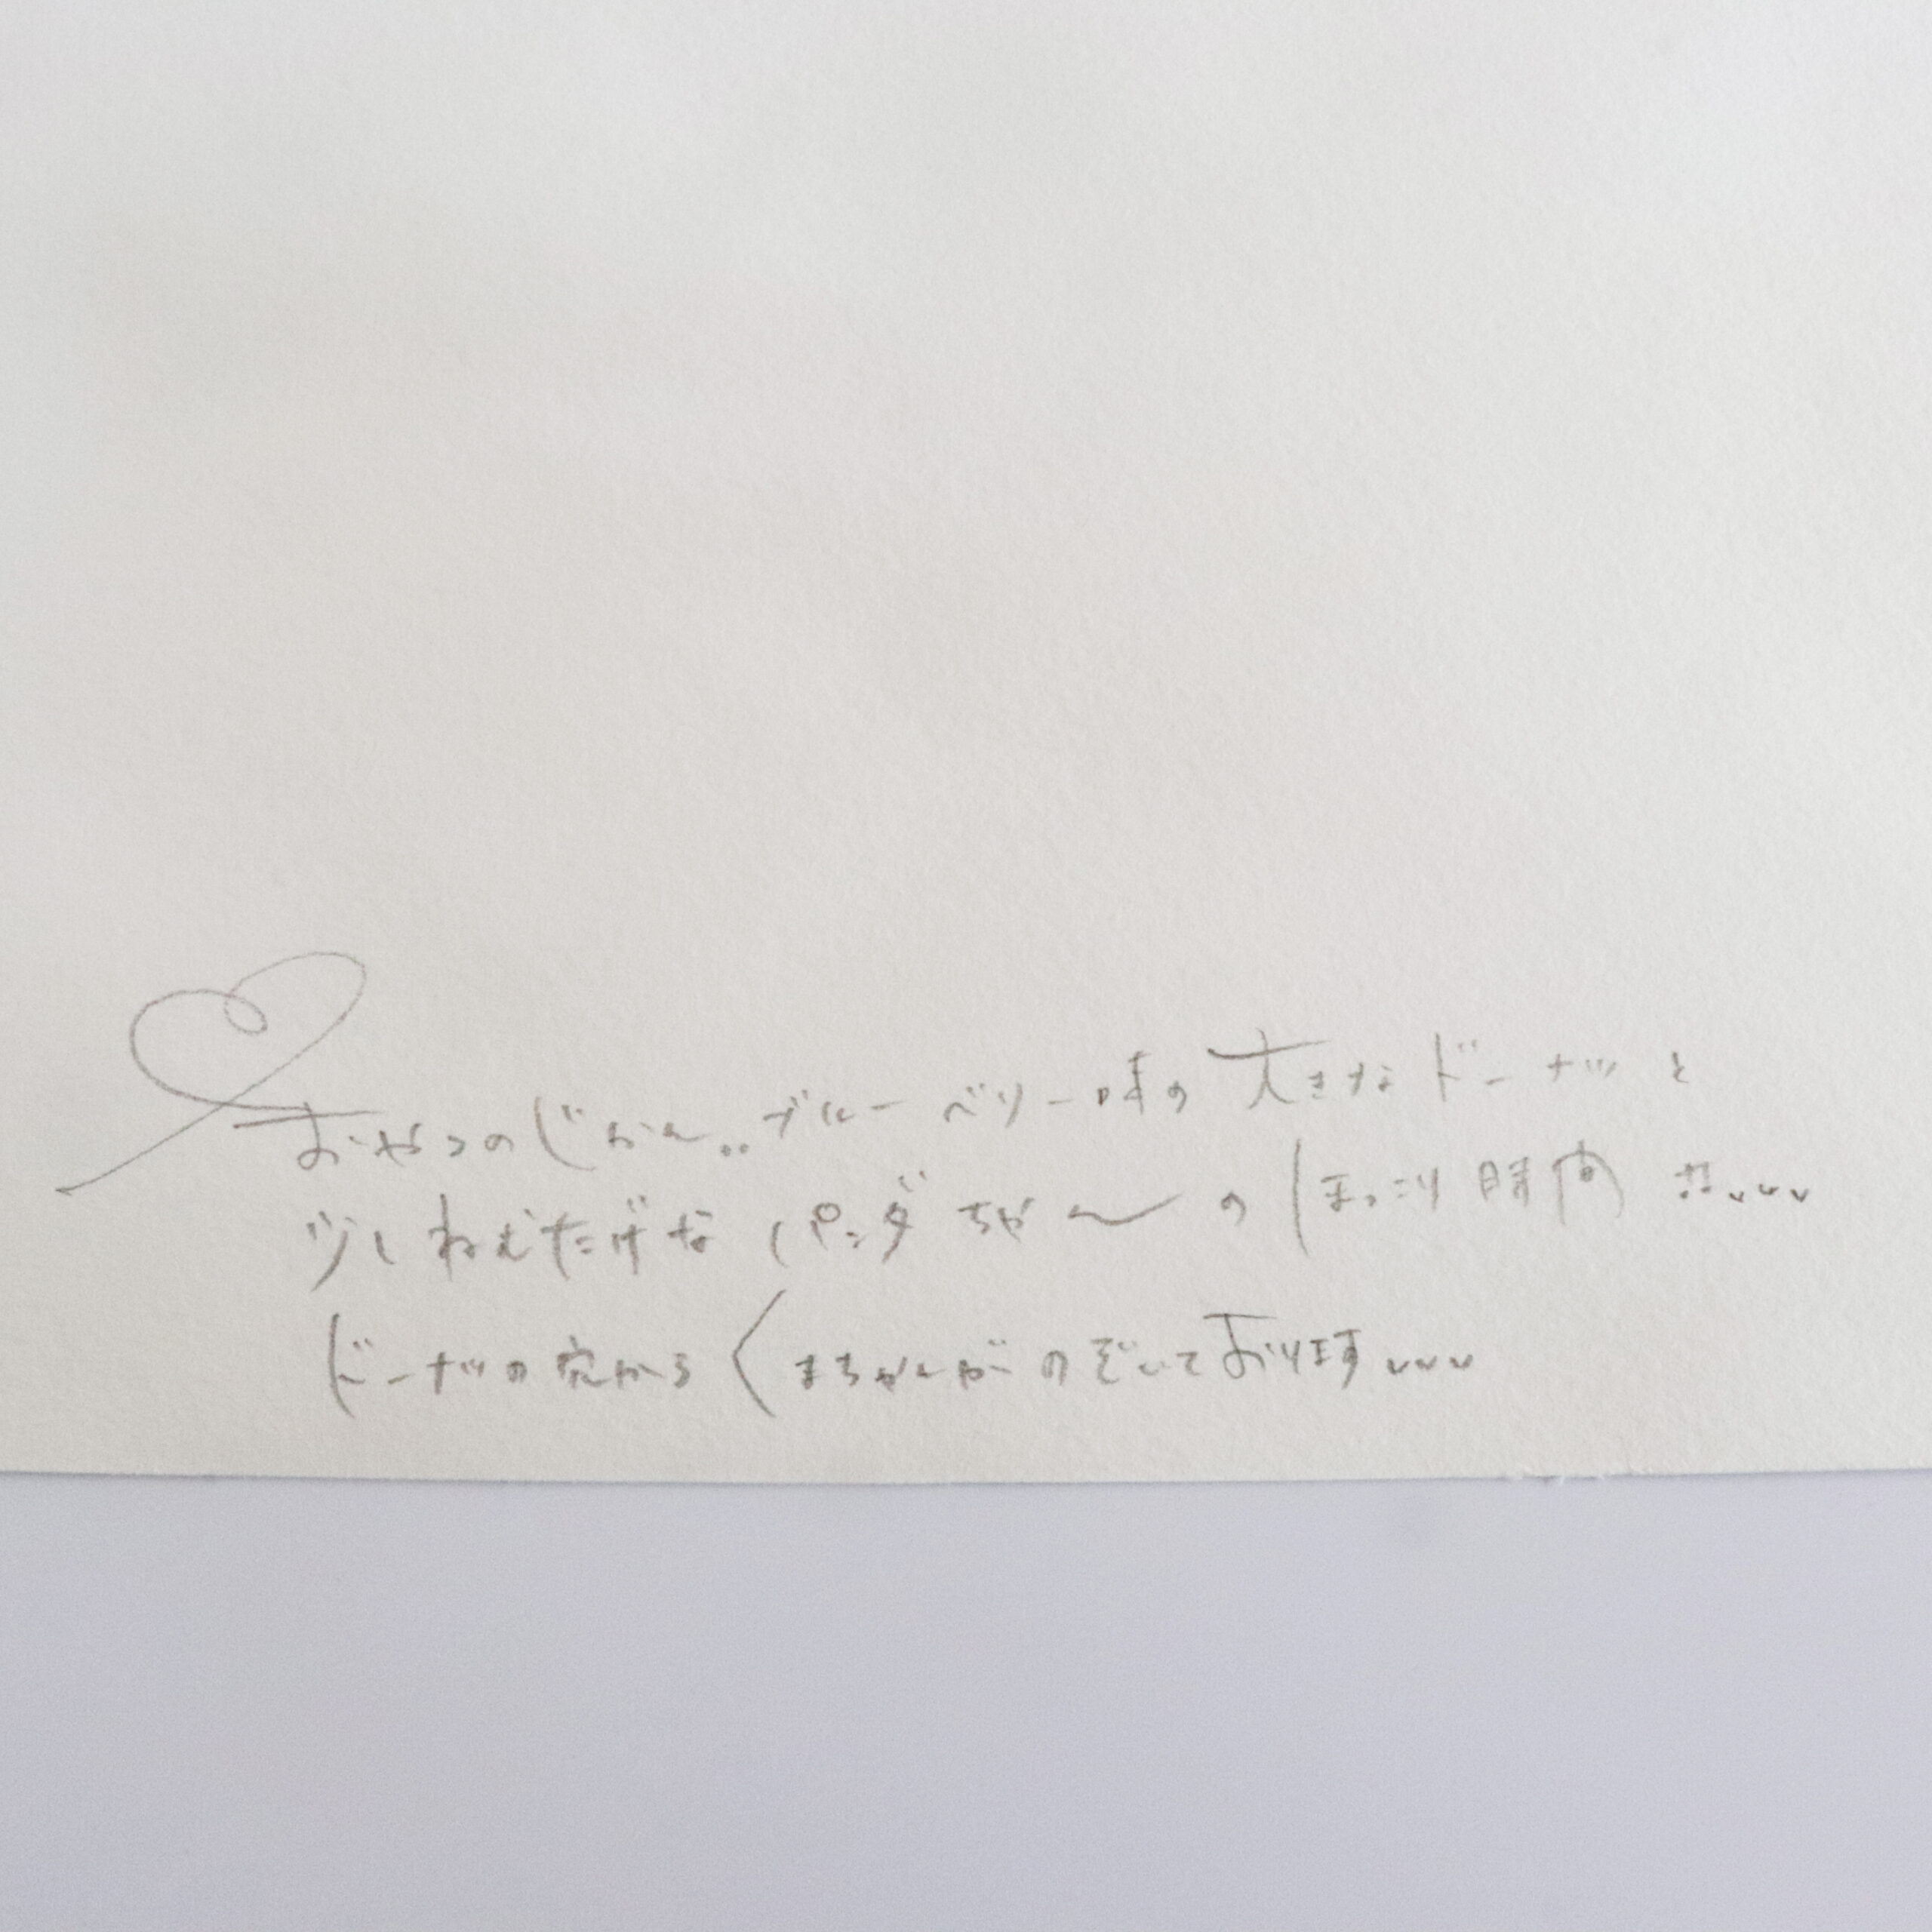 おやつのじかん..ブルーベリー味の大きなドーナツと
少しねむたげなパンダちゃんのほっこり時間♫...
ドーナツの穴からくまちゃんがのぞいております...